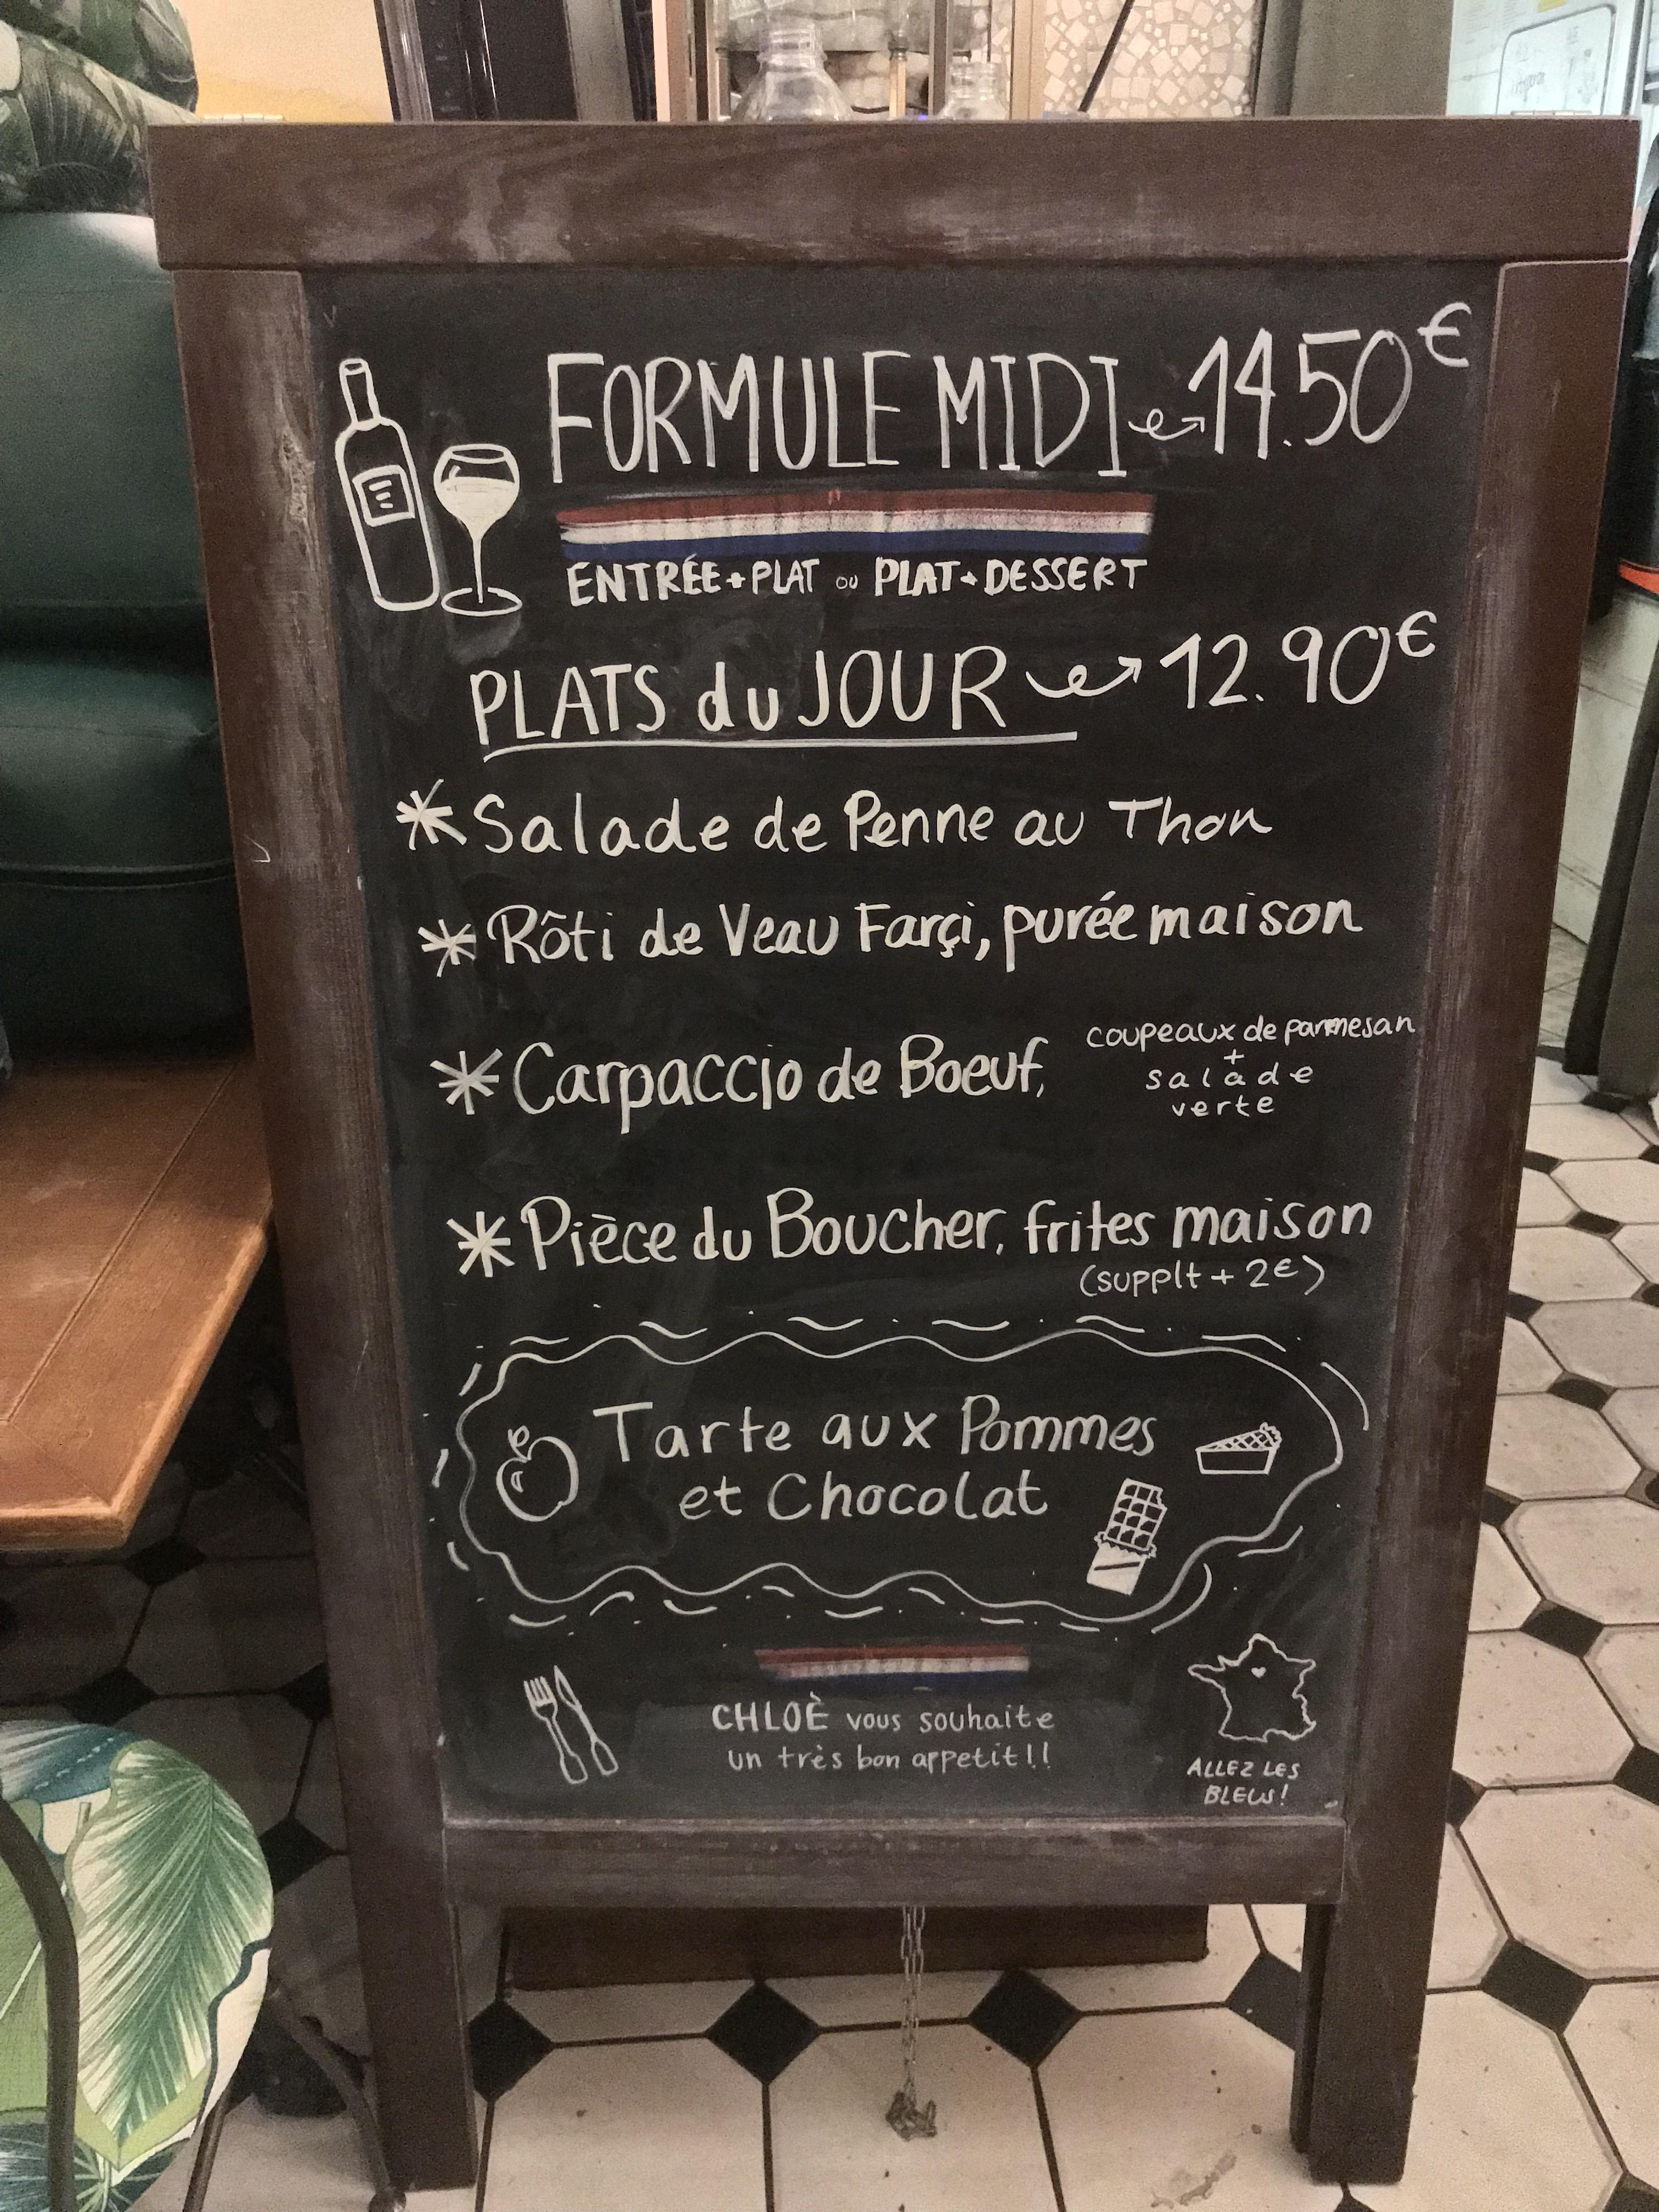 FORMULE MIDI 14.50€
ENTRÉE + PLAT ou PLAT + DESSERT
PLATS du JOUR 12.90€
* Salade de Penne au Thon
* Rôti de Veau Farçi, purée maison
* Carpaccio de Boeuf, coupeaux de parmesan
+
salade
verte
* Pièce du Boucher, frites maison
(supplt + 2€)
Tarte aux Pommes
et Chocolat
CHLOÈ vous souhaite
un très bon appetit!!
ALLEZ LES
BLEUS!